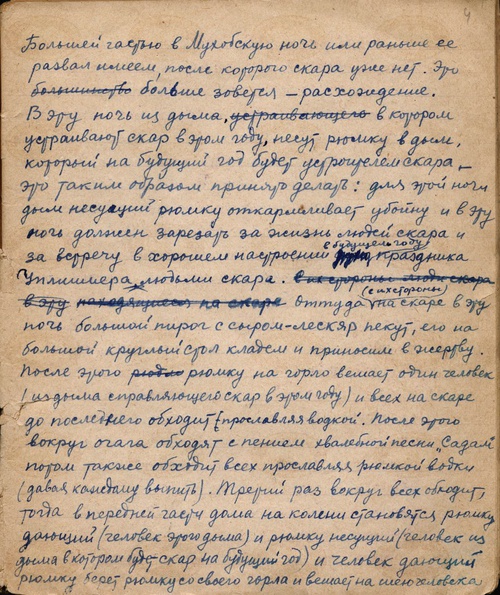 4
Большей частью в Мухобскую ночь или раньше ее
развал имеем, после которого скара уже нет. Это
большинство больше зовется – расхождение.
В эту ночь из дыма, устраивающего в котором
устраивают скар в этом году, несут рюмку в дым,
который на будущий год будет устроителем скара –
это таким образом принято делать: для этой ночи
дым несущий рюмку откармливает убойну и в эту
ночь должен зарезать за жизнь людей скара и
за встречу в хорошем настроении в будущем году праздника
Уплишера людьми скара. в их стороны люди скара
в эту находящиеся на скаре оттуда (с их стороны) на скаре в эту
ночь большой пирог с сыром-лескяр пекут, его на
большой круглый стол кладем и приносим в жертву.
После этого рюмку на горло вешает один человек
(из дыма справляющего скар в этом году) и всех на скаре
до последнего обходит прославляя водкой. После этого
вокруг очага обходят с пением хвалебной песни „Садам"
потом также обходит всех прославляя рюмкой водки
(давая каждому выпить). Третий раз вокруг всех обходит,
тогда в передней части дома на колени становятся рюмку
дающий (человек этого дыма) и рюмку несущий (человек из
дыма в котором будет скар на будущий год) и человек дающий
рюмку берет рюмку со своего горла и вешает на шею человека